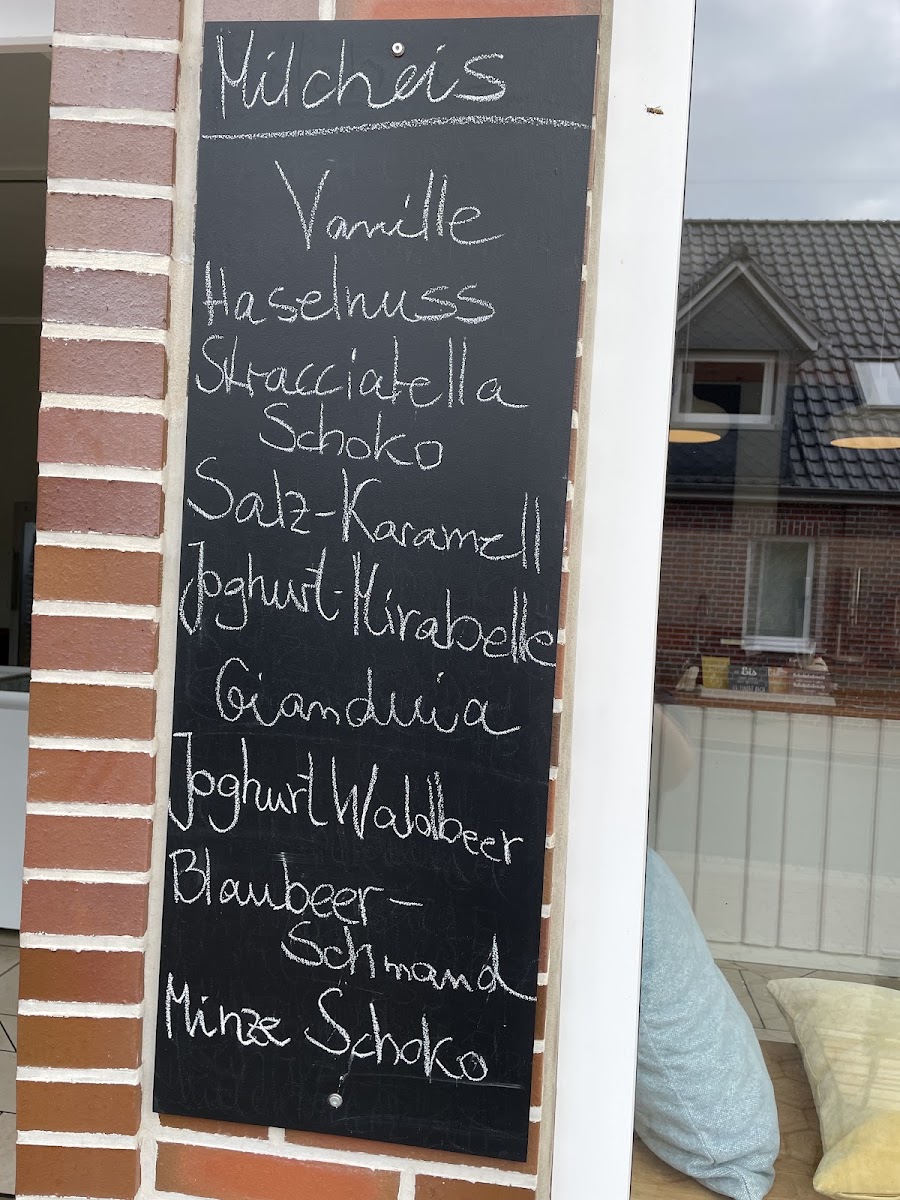 Milcheis
Vanille
Haselnuss
Stracciatella
Schoko
Salz-Karamell
Joghurt-Mirabelle
Gianduia
Joghurt Waldbeer
Blaubeer-
Schmand
Minze Schoko
Eis